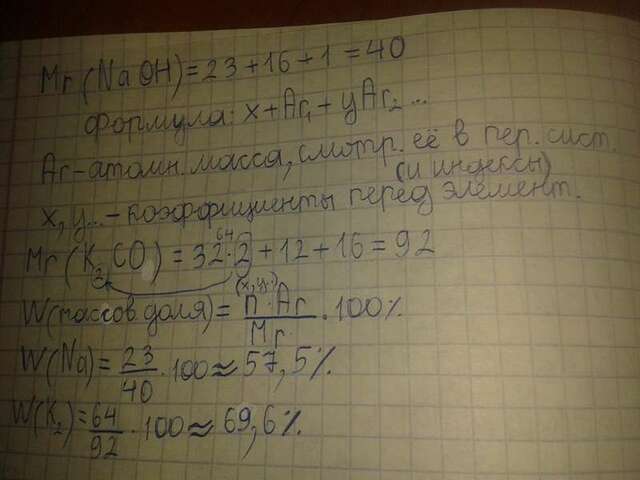 Mr(NaOH) = 23 + 16 + 1 = 40
формула: x + Ar₁ + yAr₂ ...
Ar - атомн. масса, смотр. её в пер. сист.
(и индексы)
x, y... - коэффициенты перед элемент.
64
Mr(K₂CO) = 32 · 2 + 12 + 16 = 92
(x, y..)
W(массов доля) = n · Ar / Mr · 100%
W(Na) = 23 / 40 · 100 ≈ 57,5%
W(K₂) = 64 / 92 · 100 ≈ 69,6%